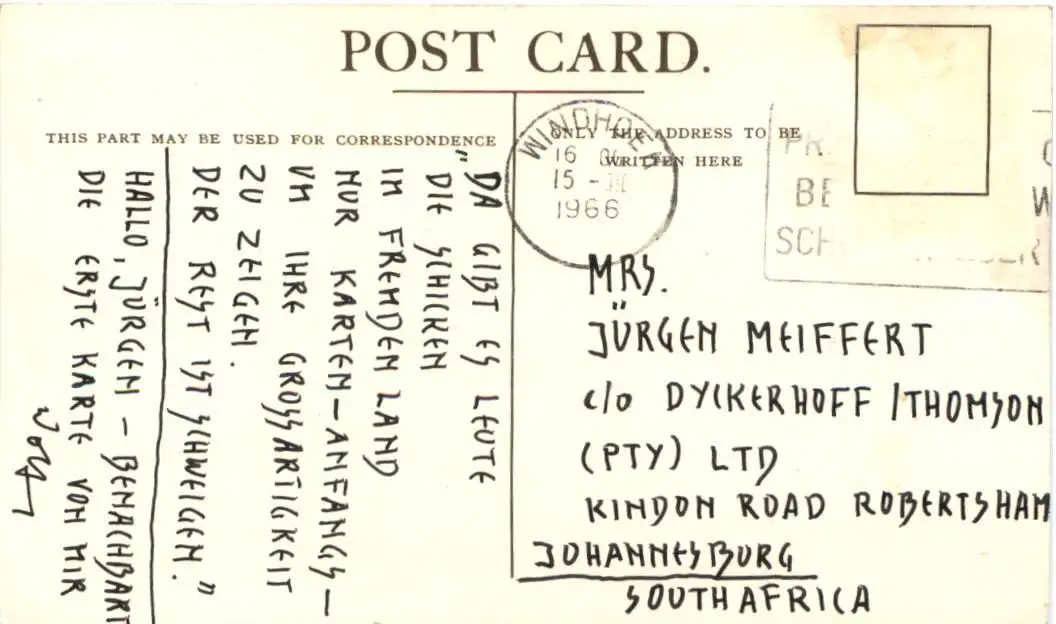 POST CARD.
THIS PART MAY BE USED FOR CORRESPONDENCE
ONLY THE ADDRESS TO BE
WRITTEN HERE
WINDHOEK
16
15 - III
1966
PR
BE
SCH
"DA GIBT ES LEUTE
DIE SCHICKEN
IM FREMDEN LAND
NUR KARTEN-ANFANGS-
UM IHRE GROSSARTIGKEIT
ZU ZEIGEN.
DER REST IST SCHWEIGEN."
HALLO, JÜRGEN - BENACHBART
DIE ERSTE KARTE VON MIR
MRS.
JÜRGEN MEIFFERT
c/o DYCKERHOFF/THOMSON
(PTY) LTD
KINDON ROAD ROBERTSHAM
JOHANNESBURG
SOUTH AFRICA